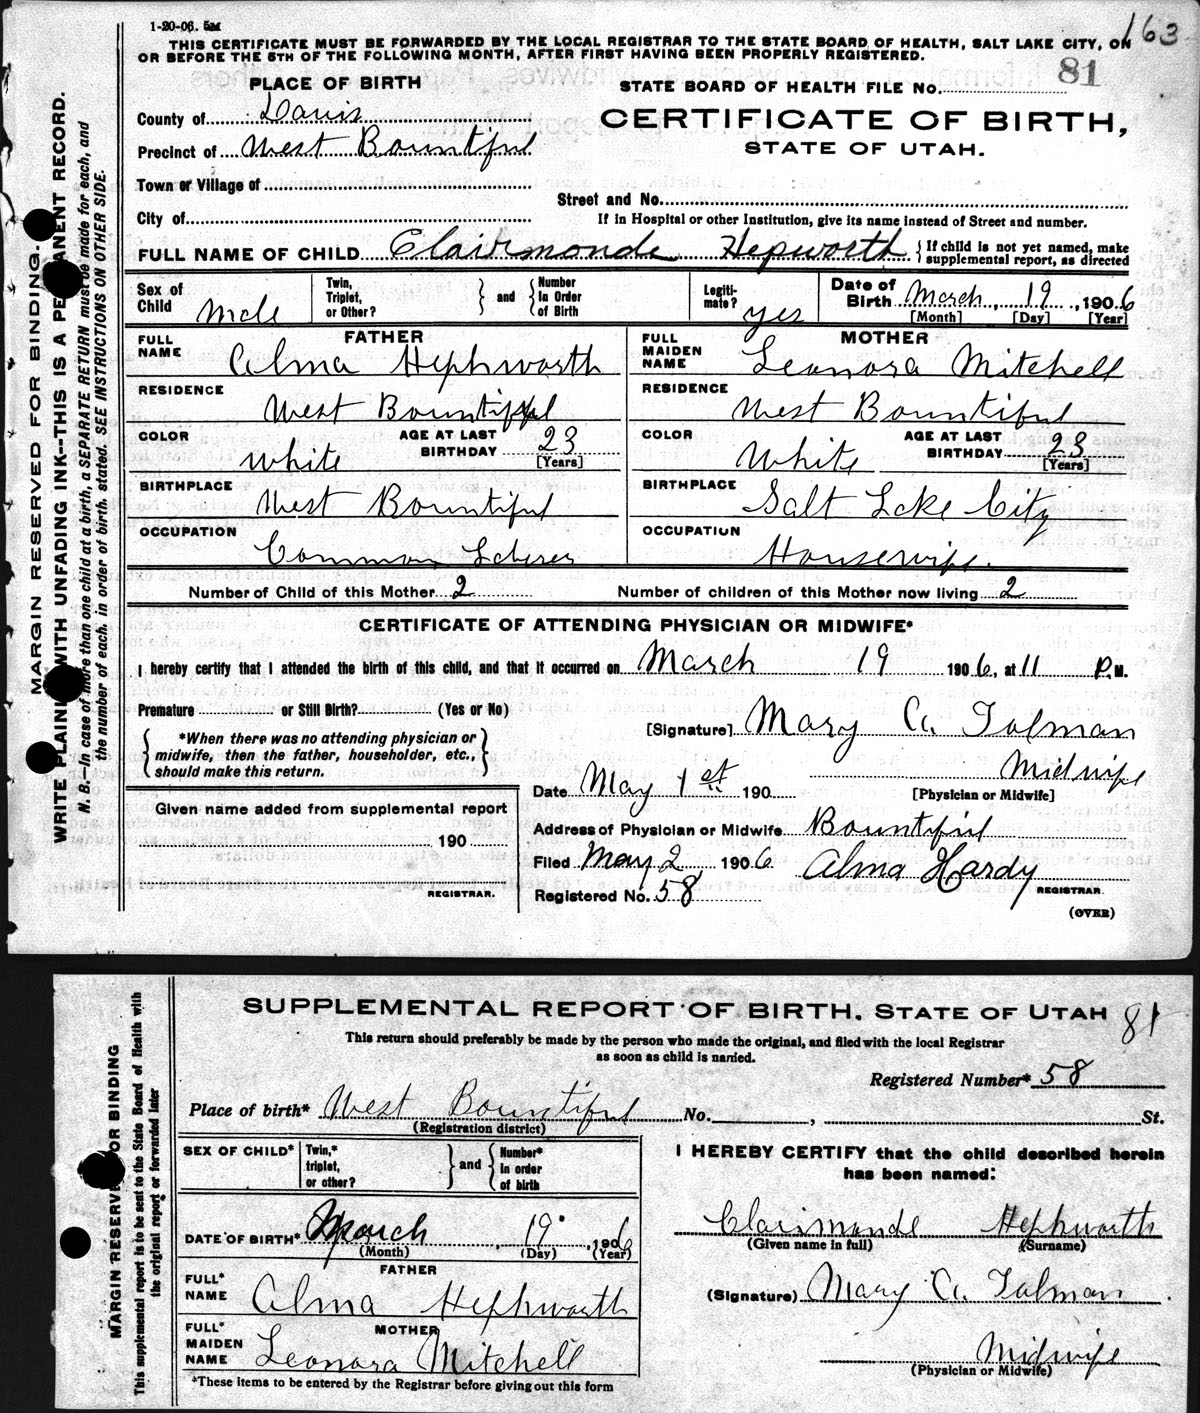 1-20-06. 5M
163
THIS CERTIFICATE MUST BE FORWARDED BY THE LOCAL REGISTRAR TO THE STATE BOARD OF HEALTH, SALT LAKE CITY, ON
OR BEFORE THE 5TH OF THE FOLLOWING MONTH, AFTER FIRST HAVING BEEN PROPERLY REGISTERED.
81
PLACE OF BIRTH
STATE BOARD OF HEALTH FILE NO.
County of Davis
CERTIFICATE OF BIRTH,
Precinct of West Bountiful
STATE OF UTAH.
Town or Village of
Street and No.
City of
If in Hospital or other Institution, give its name instead of Street and number.
FULL NAME OF CHILD Clairmonde Hepworth { If child is not yet named, make
supplemental report, as directed
Sex of Child Male
Twin, Triplet, or Other? } and { Number in Order of Birth
Legitimate? yes
Date of Birth March 19, 1906
[Month] [Day] [Year]
FATHER
FULL NAME Alma Hephworth
RESIDENCE West Bountiful
COLOR white
AGE AT LAST BIRTHDAY 23
[Years]
BIRTHPLACE West Bountiful
OCCUPATION Common Laberer
MOTHER
FULL MAIDEN NAME Leonora Mitchell
RESIDENCE West Bountiful
COLOR White
AGE AT LAST BIRTHDAY 23
[Years]
BIRTHPLACE Salt Lake City
OCCUPATION Housewife.
Number of Child of this Mother 2
Number of children of this Mother now living 2
CERTIFICATE OF ATTENDING PHYSICIAN OR MIDWIFE*
I hereby certify that I attended the birth of this child, and that it occurred on March 19 1906, at 11 P.M.
Premature or Still Birth? (Yes or No)
[Signature] Mary A. Tolman
*When there was no attending physician or
midwife, then the father, householder, etc.,
should make this return.
Midwife
[Physician or Midwife]
Date May 1st 190
Given name added from supplemental report
190
REGISTRAR.
Address of Physician or Midwife Bountiful
Filed May 2 1906 Alma Hardy
REGISTRAR.
Registered No. 58
(OVER)
MARGIN RESERVED FOR BINDING.
WRITE PLAINLY WITH UNFADING INK--THIS IS A PERMANENT RECORD.
N. B.--In case of more than one child at a birth, a SEPARATE RETURN must be made for each, and
the number of each, in order of birth, stated. SEE INSTRUCTIONS ON OTHER SIDE.
SUPPLEMENTAL REPORT OF BIRTH. STATE OF UTAH
81
This return should preferably be made by the person who made the original, and filed with the local Registrar
as soon as child is named.
Registered Number* 58
Place of birth* West Bountiful No. , St.
(Registration district)
SEX OF CHILD*
Twin,* triplet, or other? } and { Number* in order of birth
DATE OF BIRTH* March 19, 1906
(Month) (Day) (Year)
FATHER
FULL* NAME Alma Hephworth
MOTHER
FULL* MAIDEN NAME Leonora Mitchell
*These items to be entered by the Registrar before giving out this form
I HEREBY CERTIFY that the child described herein
has been named:
Clairmonde Hephworth
(Given name in full) (Surname)
(Signature) Mary A. Tolman
Midwife
(Physician or Midwife)
MARGIN RESERVED FOR BINDING
This supplemental report is to be sent to the State Board of Health with
the original report or forwarded later